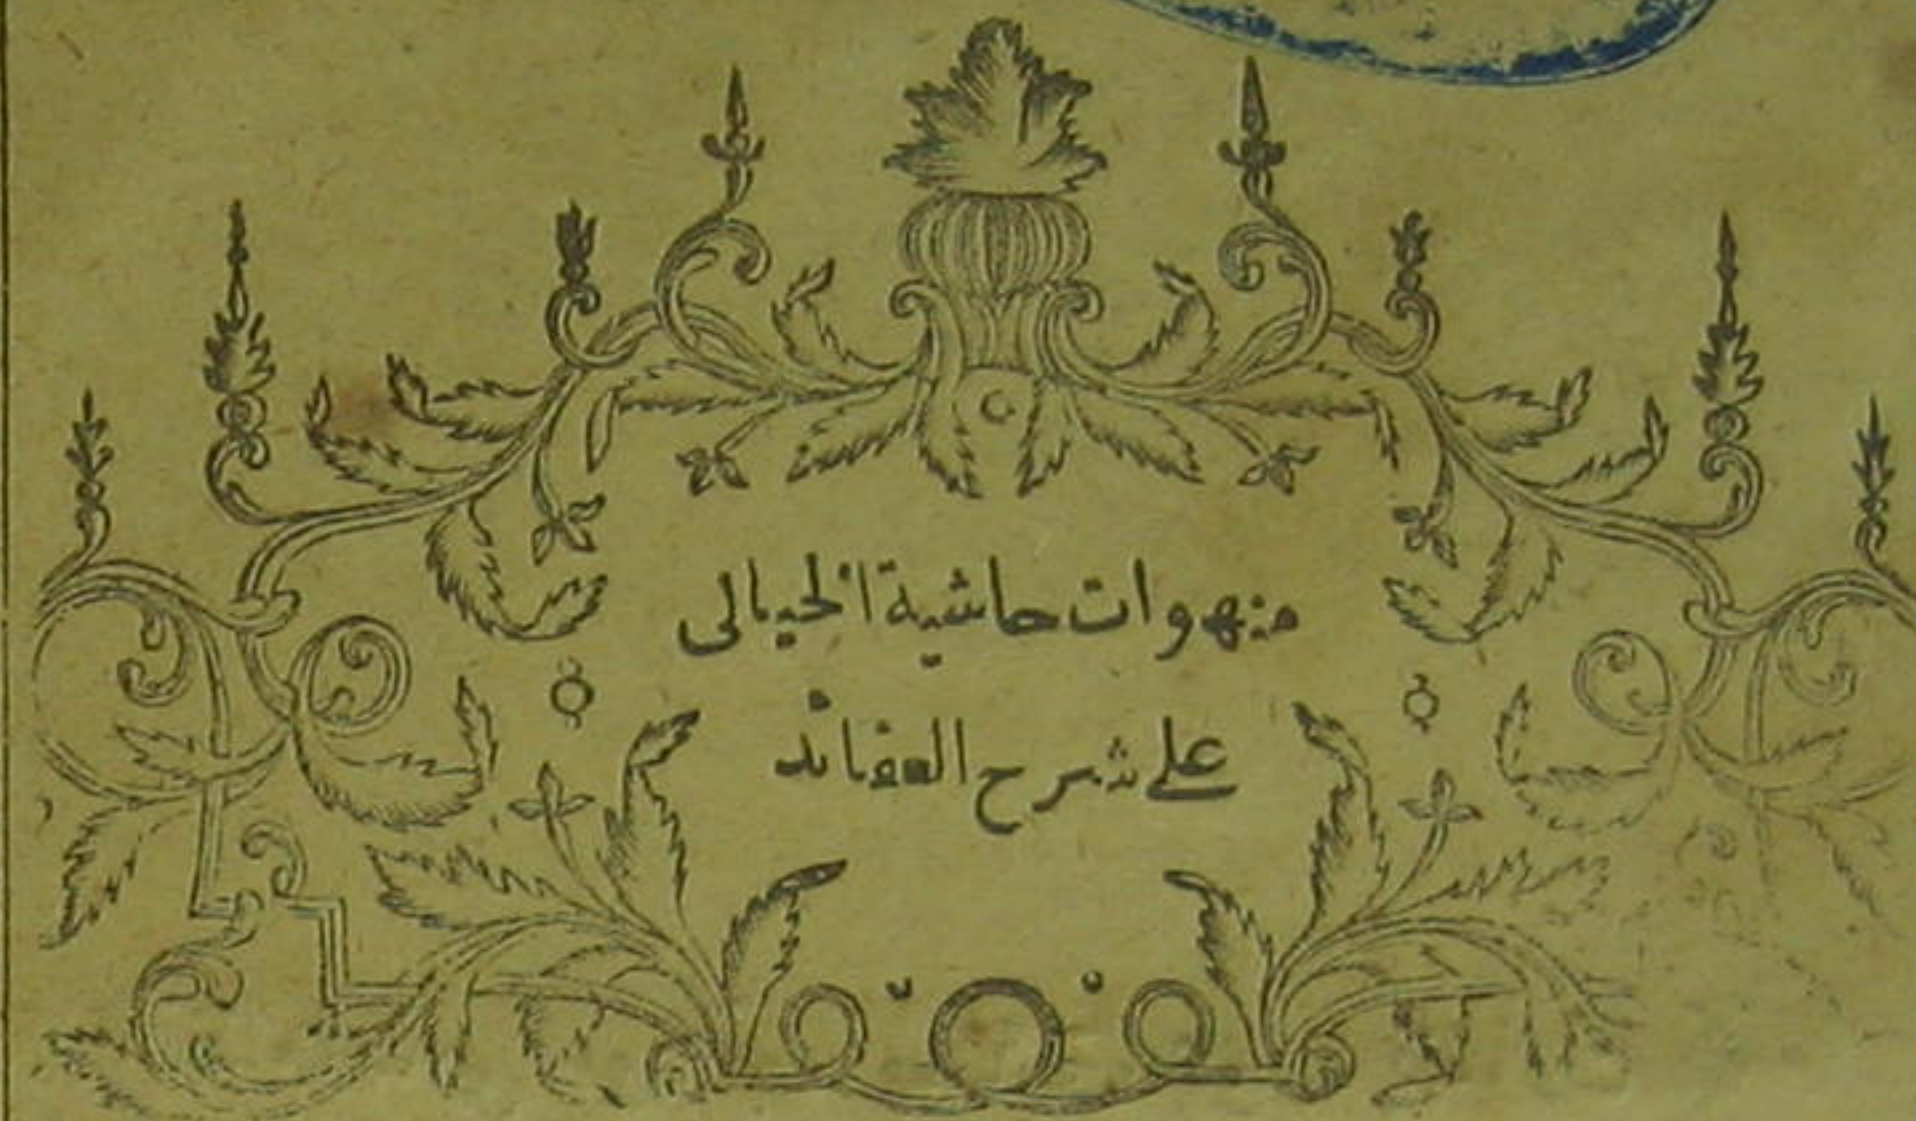 منهوات حاشية الخيالى
على شرح العقائد